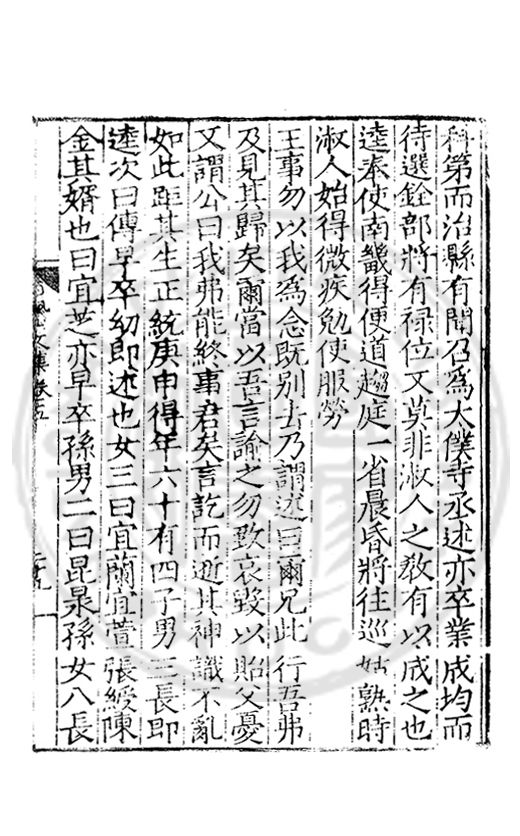 科第而治縣有聞召為太僕寺丞述亦卒業成均而
待選銓部將有禄位又莫非淑人之教有以成之也
逵奉使南畿得便道趨庭一省晨昏將往巡姑熟時
淑人始得微疾勉使服勞
王事勿以我為念既别去乃謂述曰爾兄此行吾弗
及見其歸矣爾當以吾言諭之勿致哀毀以貽父憂
又謂公曰我弗能終事君矣言訖而逝其神識不亂
如此距其生正統庚申得年六十有四子男三長即
逵次曰傳早卒幼即述也女三曰宜蘭宜萱張綬陳
金其婿也曰宜芝亦早卒孫男二曰昆㬎孫女八長
文集卷五